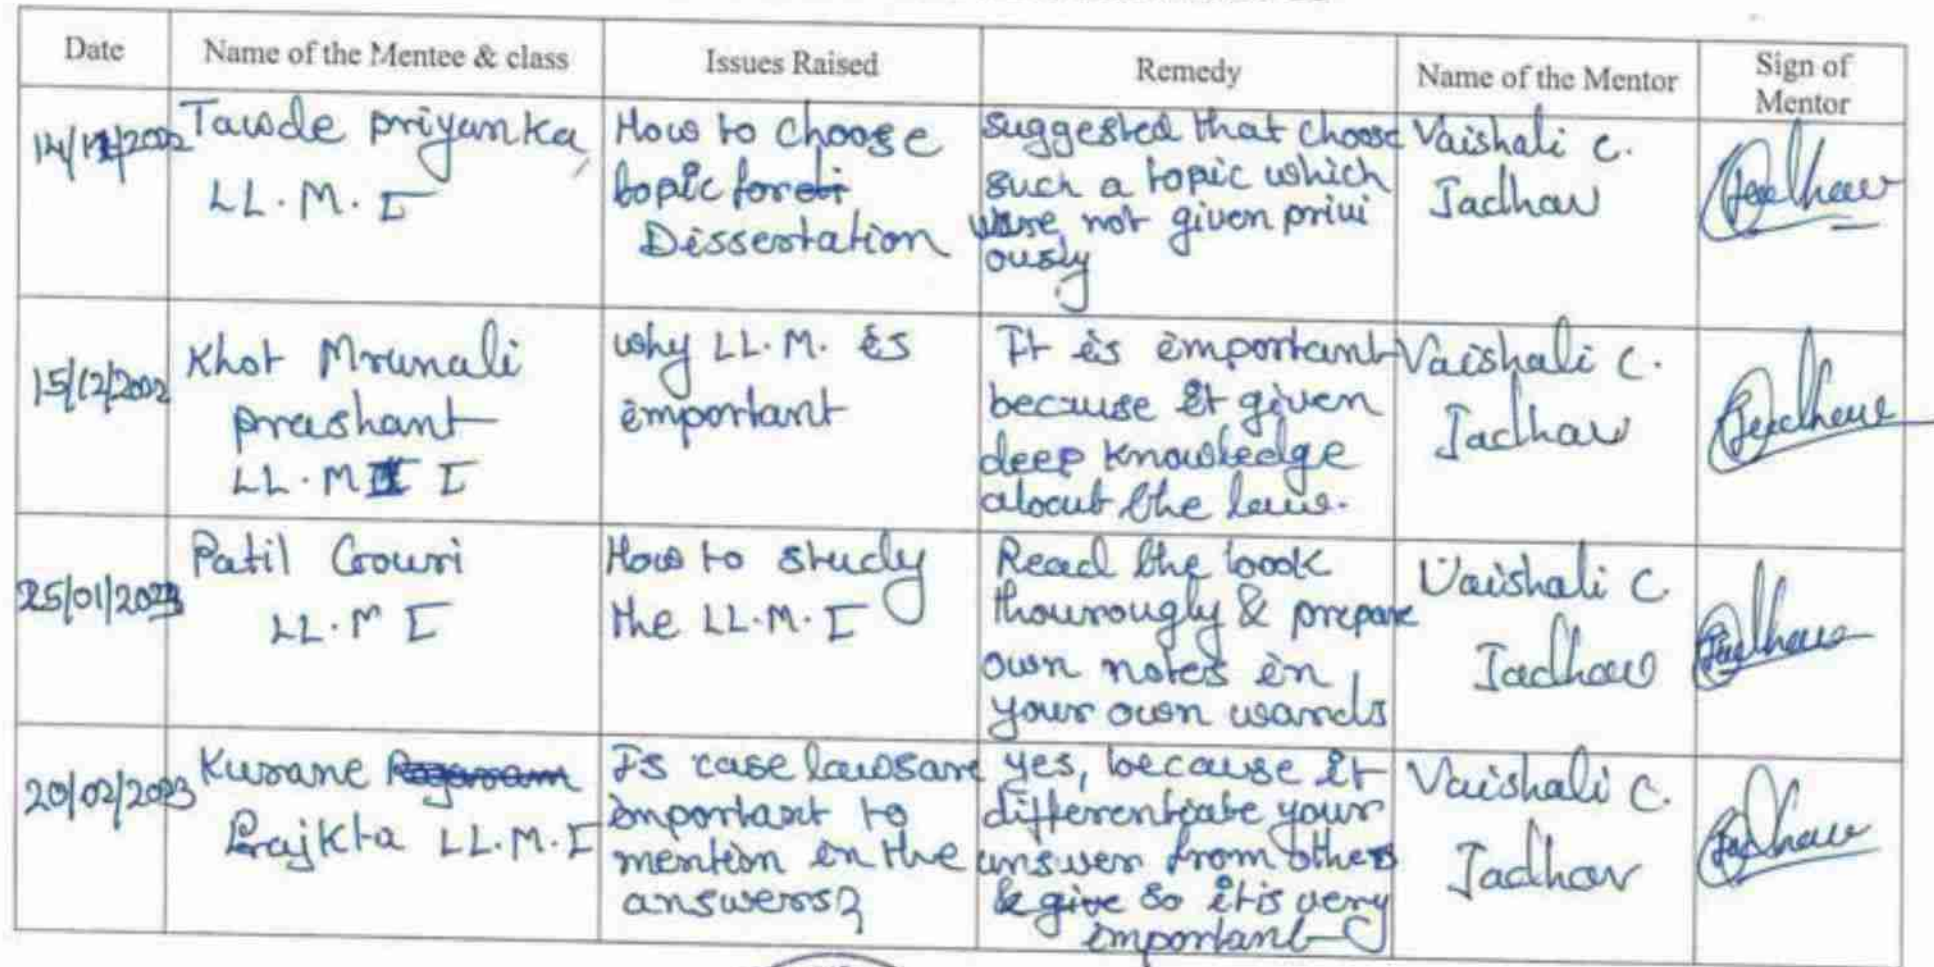 Date
Name of the Mentee & class
Issues Raised
Remedy
Name of the Mentor
Sign of
Mentor
Tawde priyanka
LL.M. I
How to choose
topic for di
Dissertation
suggested that choose
such a topic which
were not given privi
ously
Vaishali C.
Jadhav
15/12/2002
Khot Mrunali
prashant
LL.M I
why LL.M. is
important
It is important
because it given
deep knowledge
about the laws.
Vaishali C.
Jadhav
25/01/2023
Patil Gouri
LL.M I
How to study
the LL.M. I
Read the book
thourougly & prepare
own notes in
your own words
Vaishali C
Jadhav
20/02/2023
Kurane
Prajkta LL.M. I
Is case laws are
important to
mention in the
answers?
yes, because it
differentiate your
answer from others
& give so it is very
important
Vaishali C.
Jadhav